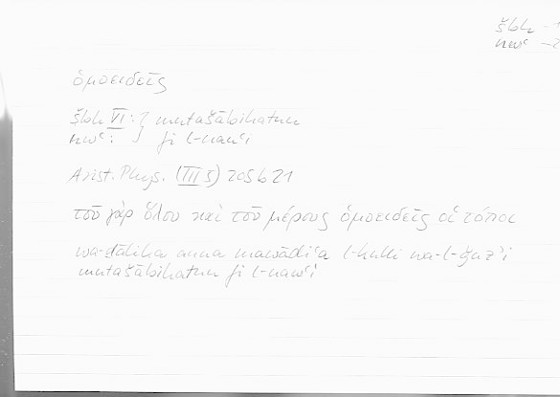 šbh – 1
nwʿ – 2
ὁμοειδεῖς
šbh VI : } mutašābihatun
nwʿ : } fī l-nawʿi
Arist. Phys. (III 5) 205b21
τοῦ γὰρ ὅλου καὶ τοῦ μέρους ὁμοειδεῖς οἱ τόποι
wa-ḏālika anna mawāḍiʿa l-kulli wa-l-ǧuzʾi
mutašābihatun fī l-nawʿi